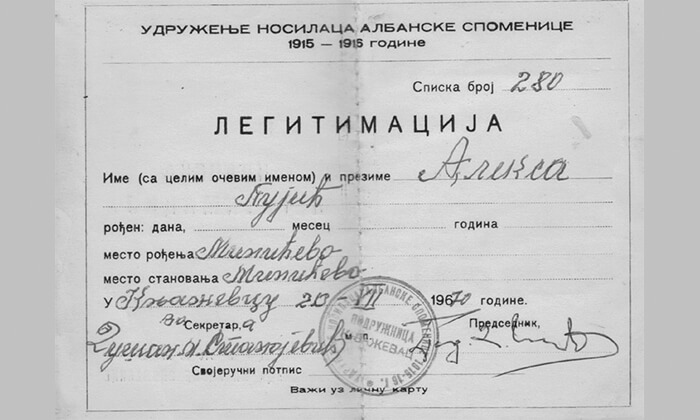 УДРУЖЕЊЕ НОСИЛАЦА АЛБАНСКЕ СПОМЕНИЦЕ
1915 — 1916 ГОДИНЕ
Списка број 280
ЛЕГИТИМАЦИЈА
Име (са целим очевим именом) и презиме Алекса
рођен: дана, месец година
место рођења Минићево
место становања Минићево
У Књажевцу 20-VII 1970 године.
За Секретара Председник,
Душан Станојевић м.п.
Својеручни потпис
Важи уз личну карту